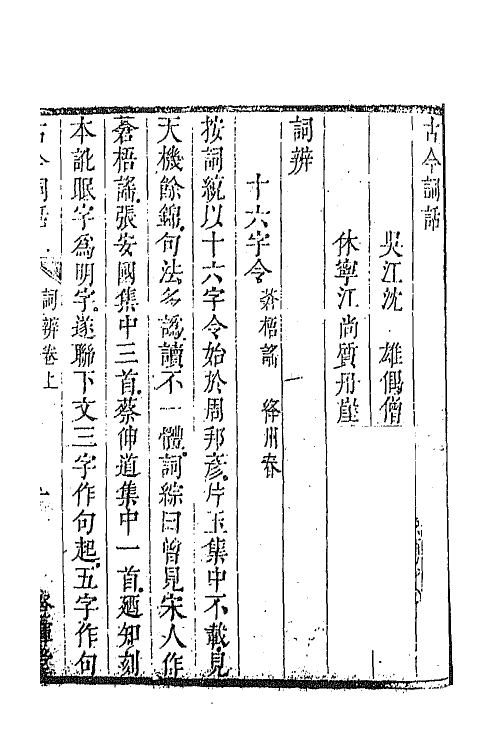 古今詞話
吳江沈　雄偶僧
休寧江尚質丹崖
詞辨
十六字令　蒼梧謠　絳州春
按詞統以十六字令始於周邦彥片玉集中不載見
天機餘錦句法多譌讀不一體詞綜曰曾見宋人作
蒼梧謠張安國集中三首蔡伸道集中一首廼知刻
本訛眠字爲明字遂聯下文三字作句起五字作句
古今詞話　詞辨卷上　一